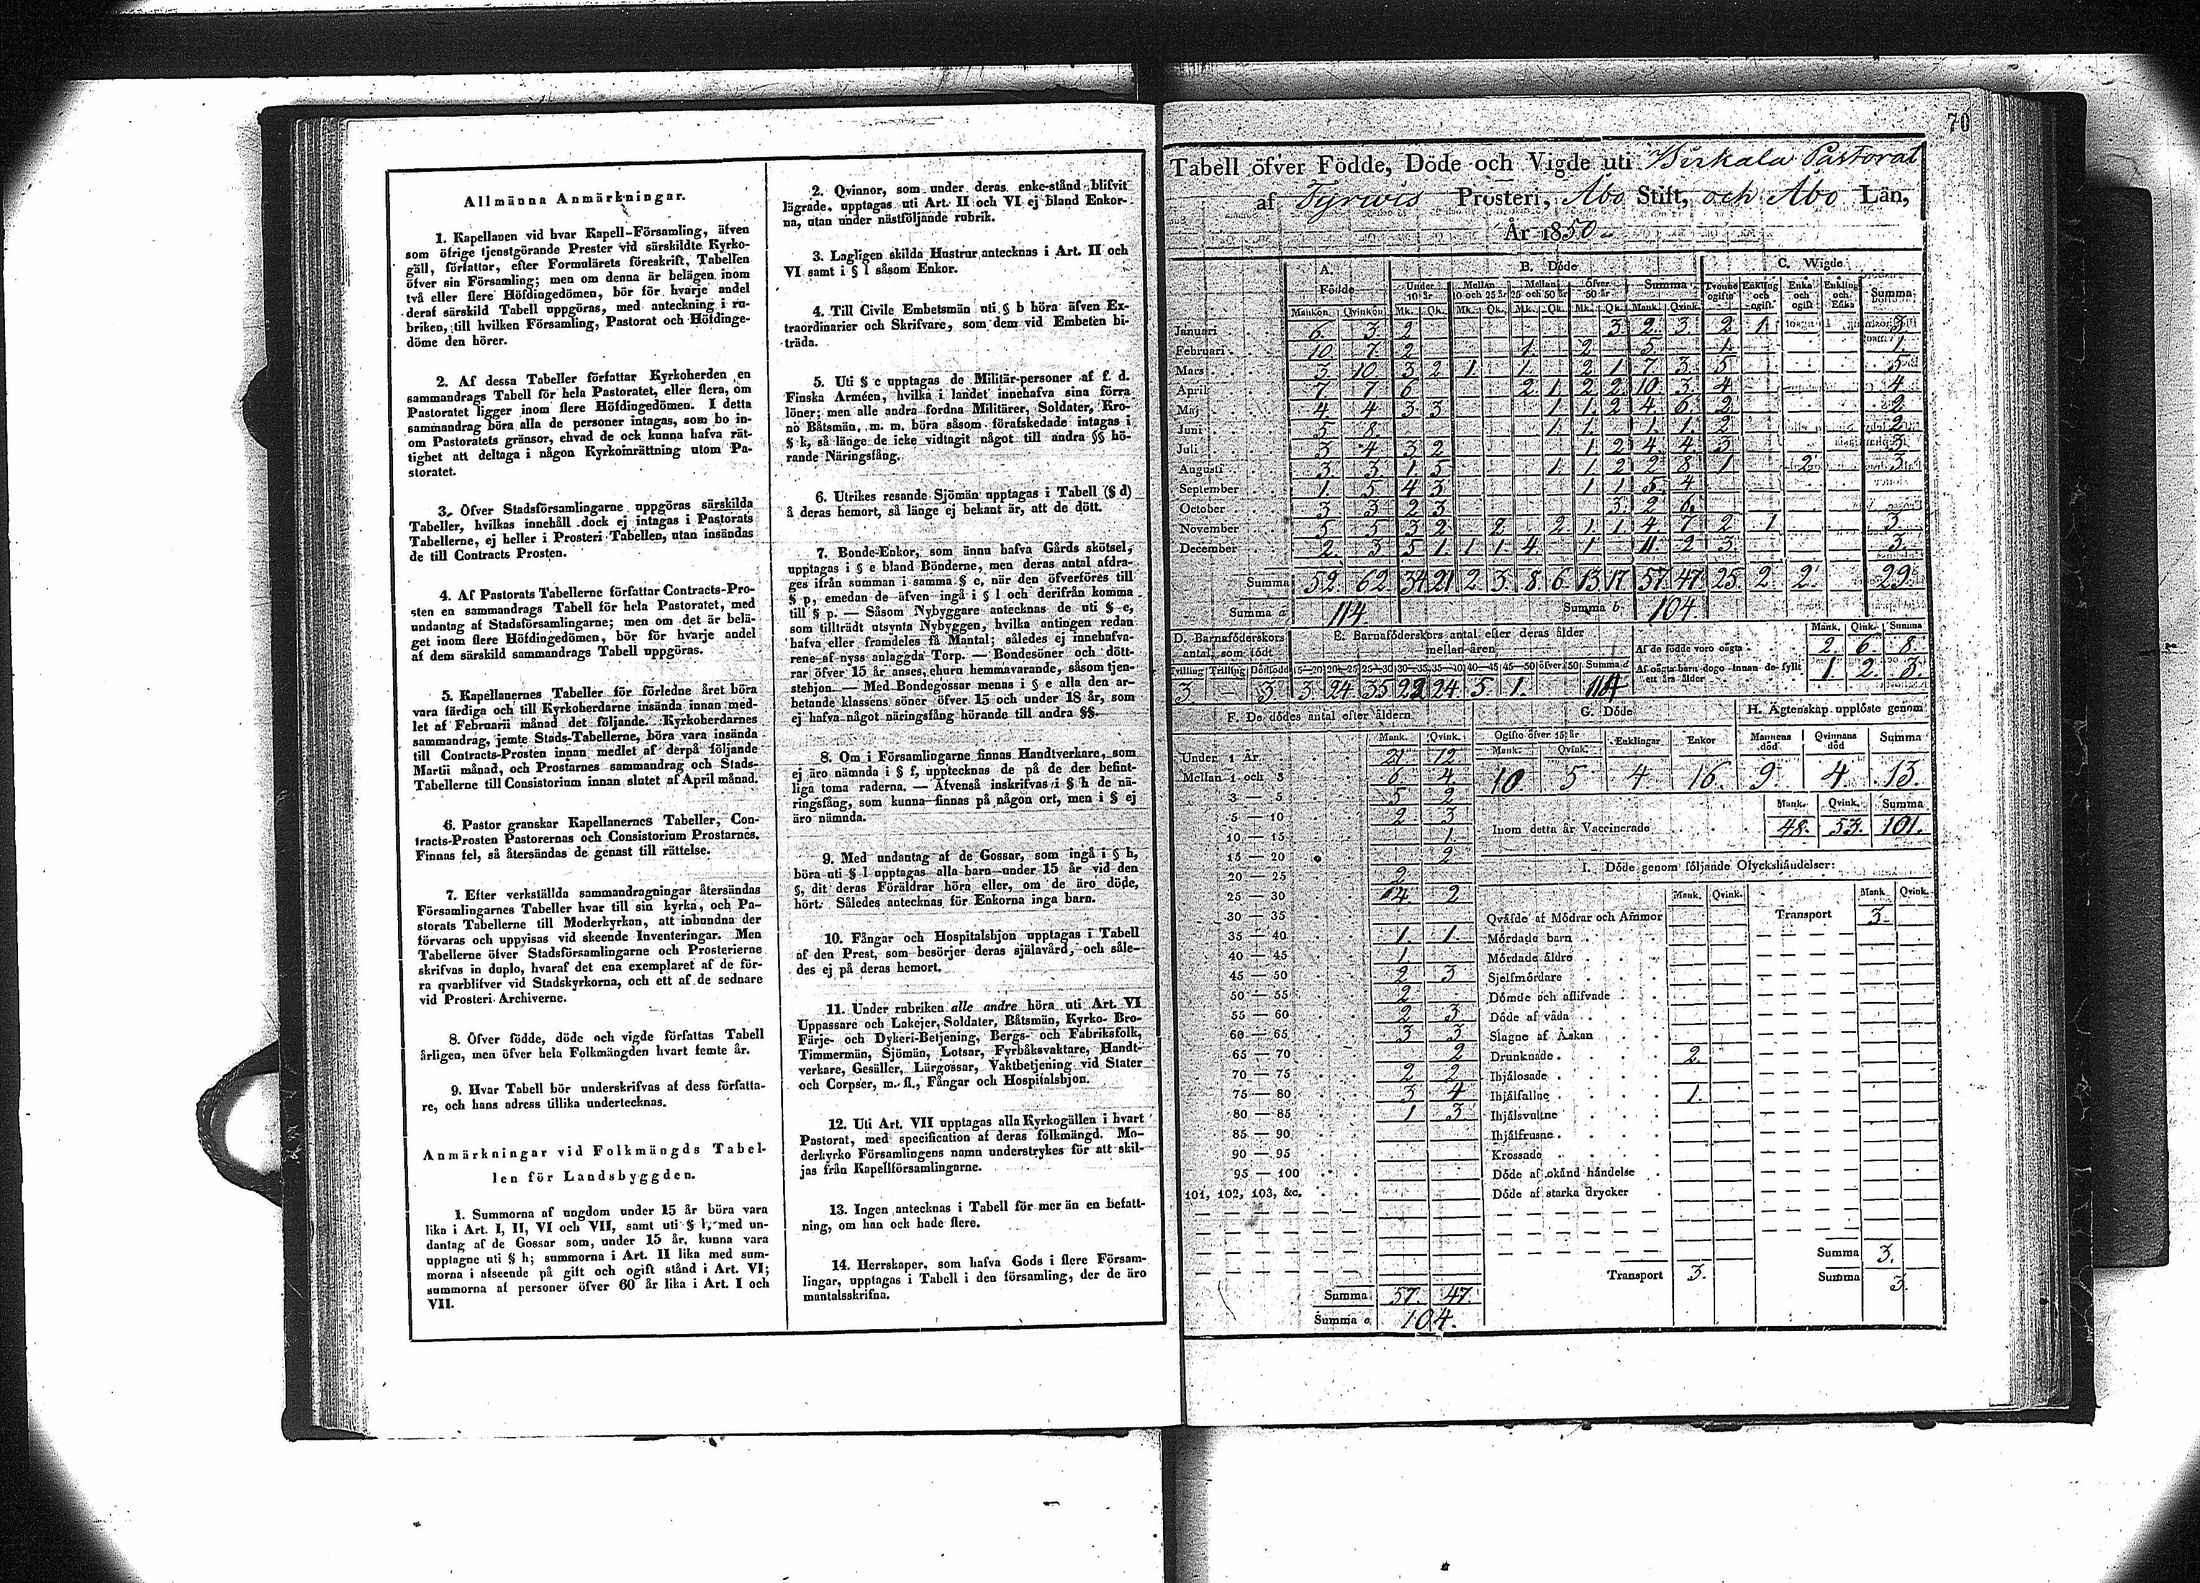 70
Allmänna Anmärkningar.
1. Kapellanen vid hvar Kapell-Församling, äfven
som öfrige tjenstgörande Prester vid särskildte Kyrko-
gäll, författar, efter Formulärets föreskrift, Tabellen
öfver sin Församling; men om denna är belägen inom
två eller flere Höfdingedömen, bör för hvarje andel
deraf särskild Tabell uppgöras, med anteckning i ru-
briken, till hvilken Församling, Pastorat och Höfdinge-
döme den hörer.
2. Af dessa Tabeller författar Kyrkoherden en
sammandrags Tabell för hela Pastoratet, eller flera, om
Pastoratet ligger inom flere Höfdingedömen. I detta
sammandrag böra alla de personer intagas, som bo in-
om Pastoratets gränsor, ehvad de ock kunna hafva rät-
tighet att deltaga i någon Kyrkoinrättning utom Pa-
storatet.
3. Öfver Stadsförsamlingarne uppgöras särskilda
Tabeller, hvilkas innehåll dock ej intagas i Pastorats
Tabellerne, ej heller i Prosteri Tabellen, utan insändas
de till Contracts Prosten.
4. Af Pastorats Tabellerne författar Contracts-Pro-
sten en sammandrags Tabell för hela Pastoratet, med
undantag af Stadsförsamlingarne; men om det är belä-
get inom flere Höfdingedömen, bör för hvarje andel
af dem särskild sammandrags Tabell uppgöras.
5. Kapellanernes Tabeller för förledne året böra
vara färdiga och till Kyrkoherdarne insända innan med-
let af Februarii månad det följande. Kyrkoherdarnes
sammandrag, jemte Stads-Tabellerne, böra vara insända
till Contracts-Prosten innan medlet af derpå följande
Martii månad, och Prostarnes sammandrag och Stads-
Tabellerne till Consistorium innan slutet af April månad.
6. Pastor granskar Kapellanernes Tabeller, Con-
tracts-Prosten Pastorernas och Consistorium Prostarnes.
Finnas fel, så återsändas de genast till rättelse.
7. Efter verkställda sammandragningar återsändas
Församlingarnes Tabeller hvar till sin kyrka, och Pa-
storats Tabellerne till Moderkyrkan, att inbundna der
förvaras och uppvisas vid skeende Inventeringar. Men
Tabellerne öfver Stadsförsamlingarne och Prosterierne
skrifvas in duplo, hvaraf det ena exemplaret af de för-
ra qvarblifver vid Stadskyrkorna, och ett af de sednare
vid Prosteri Archiverne.
8. Öfver födde, döde och vigde författas Tabell
årligen, men öfver hela Folkmängden hvart femte år.
9. Hvar Tabell bör underskrifvas af dess författa-
re, och hans adress tillika undertecknas.
Anmärkningar vid Folkmängds Tabel-
len för Landsbyggden.
1. Summorna af ungdom under 15 år böra vara
lika i Art. I, II, VI och VII, samt uti § l, med un-
dantag af de Gossar som, under 15 år, kunna vara
upptagne uti § h; summorna i Art. II lika med sum-
morna i afseende på gift och ogift stånd i Art. VI;
summorna af personer öfver 60 år lika i Art. I och
VII.
2. Qvinnor, som under deras enke-stånd blifvit
lägrade, upptagas uti Art. II och VI ej bland Enkor-
na, utan under nästföljande rubrik.
3. Lagligen skilda Hustrur antecknas i Art. II och
VI samt i § l såsom Enkor.
4. Till Civile Embetsmän uti § b höra äfven Ex-
traordinarier och Skrifvare, som dem vid Embeten bi-
träda.
5. Uti § c upptagas de Militär-personer af f. d.
Finska Arméen, hvilka i landet innehafva sina förra
löner; men alle andra fordna Militärer, Soldater, Kro-
no Båtsmän, m. m. böra såsom förafskedade intagas i
§ k, så länge de icke vidtagit något till andra §§ hö-
rande Näringsfång.
6. Utrikes resande Sjömän upptagas i Tabell (§ d)
å deras hemort, så länge ej bekant är, att de dött.
7. Bonde-Enkor, som ännu hafva Gårds skötsel,
upptagas i § e bland Bönderne, men deras antal afdra-
ges ifrån summan i samma § e, när den öfverföres till
§ p, emedan de äfven ingå i § l och derifrån komma
till § p. — Såsom Nybyggare antecknas de uti § e,
som tillträdt utsynta Nybyggen, hvilka antingen redan
hafva eller framdeles få Mantal; således ej innehafva-
rene af nyss anlaggda Torp. — Bondesöner och dött-
rar öfver 15 år anses, ehuru hemmavarande, såsom tjen-
stehjon. — Med Bondegossar menas i § e alla den ar-
betande klassens söner öfver 15 och under 18 år, som
ej hafva något näringsfång hörande till andra §§.
8. Om i Församlingarne finnas Handtverkare, som
ej äro nämnda i § f, upptecknas de på de der befint-
liga toma raderna. — Äfvenså inskrifvas i § h de nä-
ringsfång, som kunna finnas på någon ort, men i § ej
äro nämnda.
9. Med undantag af de Gossar, som ingå i § h,
böra uti § l upptagas alla barn under 15 år vid den
§, dit deras Föräldrar höra eller, om de äro döde,
hört. Således antecknas för Enkorna inga barn.
10. Fångar och Hospitalshjon upptagas i Tabell
af den Prest, som besörjer deras själavård, och såle-
des ej på deras hemort.
11. Under rubriken alle andre höra uti Art. VI
Uppassare och Lakejer, Soldater, Båtsmän, Kyrko- Bro-
Färje- och Dykeri-Betjening, Bergs- och Fabriksfolk,
Timmermän, Sjömän, Lotsar, Fyrbåksvaktare, Handt-
verkare, Gesäller, Lärgossar, Vaktbetjening vid Stater
och Corpser, m. fl., Fångar och Hospitalshjon.
12. Uti Art. VII upptagas alla Kyrkogällen i hvart
Pastorat, med specification af deras folkmängd. Mo-
derkyrko Församlingens namn understrykes för att skil-
jas från Kapellförsamlingarne.
13. Ingen antecknas i Tabell för mer än en befatt-
ning, om han ock hade flere.
14. Herrskaper, som hafva Gods i flere Försam-
lingar, upptagas i Tabell i den församling, der de äro
mantalsskrifna.
Tabell öfver Födde, Döde och Vigde uti Birkala Pastorat
af Tyrwis Prosteri, Åbo Stift, och Åbo Län,
År 1850
A. Födde B. Döde C. Wigde
Under 10 år Mellan 10 och 25 år Mellan 25 och 50 år Öfver 50 år Summa Tvenne ogifte Enkling och ogift Enka och ogift Enkling och Enka Summa
Mankön Qvinkön Mk. Qk. Mk. Qk. Mk. Qk. Mk. Qk. Mank. Qvink.
Januari 6. 3. 2 3 2. 3. 2 1. 3.
Februari 10. 7. 2 1. 2 5. 1. 1.
Mars 3 10. 3 2 1. 1. 2 1 7. 3. 5 5
April 7 7 6 2 1. 2 2 10. 3. 4 4
Maj 4 4 3 3 1. 1. 2 4. 6. 2 2
Juni 5 8. 1. 1. 1. 1. 2 2
Juli 3 4 3 2 1 2 4 4 3 3
Augusti 3 3 1 5 1. 1 2 2 8. 1 2 3
September 1. 5 4 3 1 1 5. 4
October 3 3 2 3 3 2 6.
November 5 5 3 2 2 2 1 1 4 7 2 1 3
December 2 3 5 1. 1 1. 4. 1 11. 2 3. 3.
Summa 52. 62. 34 21 2. 3. 8. 6. 13. 17. 57. 47. 25. 2. 2. 29.
Summa a 114. Summa b 104
D. Barnaföderskors antal, som födt
E. Barnaföderskors antal efter deras ålder mellan åren
Tvilling Trilling Dödfödd 15—20 20—25 25—30 30—35 35—40 40—45 45—50 öfver 50 Summa d
3 — 3 3 24 35 22 24 5 1. 114
Mank. Qink. Summa
Af de födde voro oägta 2. 6. 8.
Af oägta barn dogo innan de fyllt ett års ålder 1. 2. 3.
F. De dödes antal efter åldern
Mank. Qvink.
Under 1 År 21 12
Mellan 1 och 3 6 4
3 — 5 5 2
5 — 10 2 3
10 — 15 1.
15 — 20 2
20 — 25 2
25 — 30 4 2
30 — 35
35 — 40 1. 1.
40 — 45 1
45 — 50 2 3
50 — 55 2
55 — 60 2 3
60 — 65 3 3
65 — 70 2
70 — 75 2 2
75 — 80 3 4
80 — 85 1 3
85 — 90
90 — 95
95 — 100
101, 102, 103, &c.
Summa 57. 47.
Summa c 104.
G. Döde
Ogifte öfver 15 år Enklingar Enkor
Mank. Qvink.
10 5 4 16.
H. Ägtenskap upplöste genom
Mannens död Qvinnans död Summa
9. 4 13.
Mank. Qvink. Summa
Inom detta år Vaccinerade 48. 53. 101.
I. Döde genom följande Olyckshändelser:
Mank. Qvink. Mank. Qvink.
Qväfde af Mödrar och Ammor Transport 3.
Mördade barn
Mördade äldre
Sjelfmördare
Dömde och aflifvade
Döde af våda
Slagne af Åskan
Drunknade 2.
Ihjälosade
Ihjälfallne 1.
Ihjälsvultne
Ihjälfrusne
Krossade
Döde af okänd händelse
Döde af starka drycker
Summa 3.
Transport 3. Summa 3.